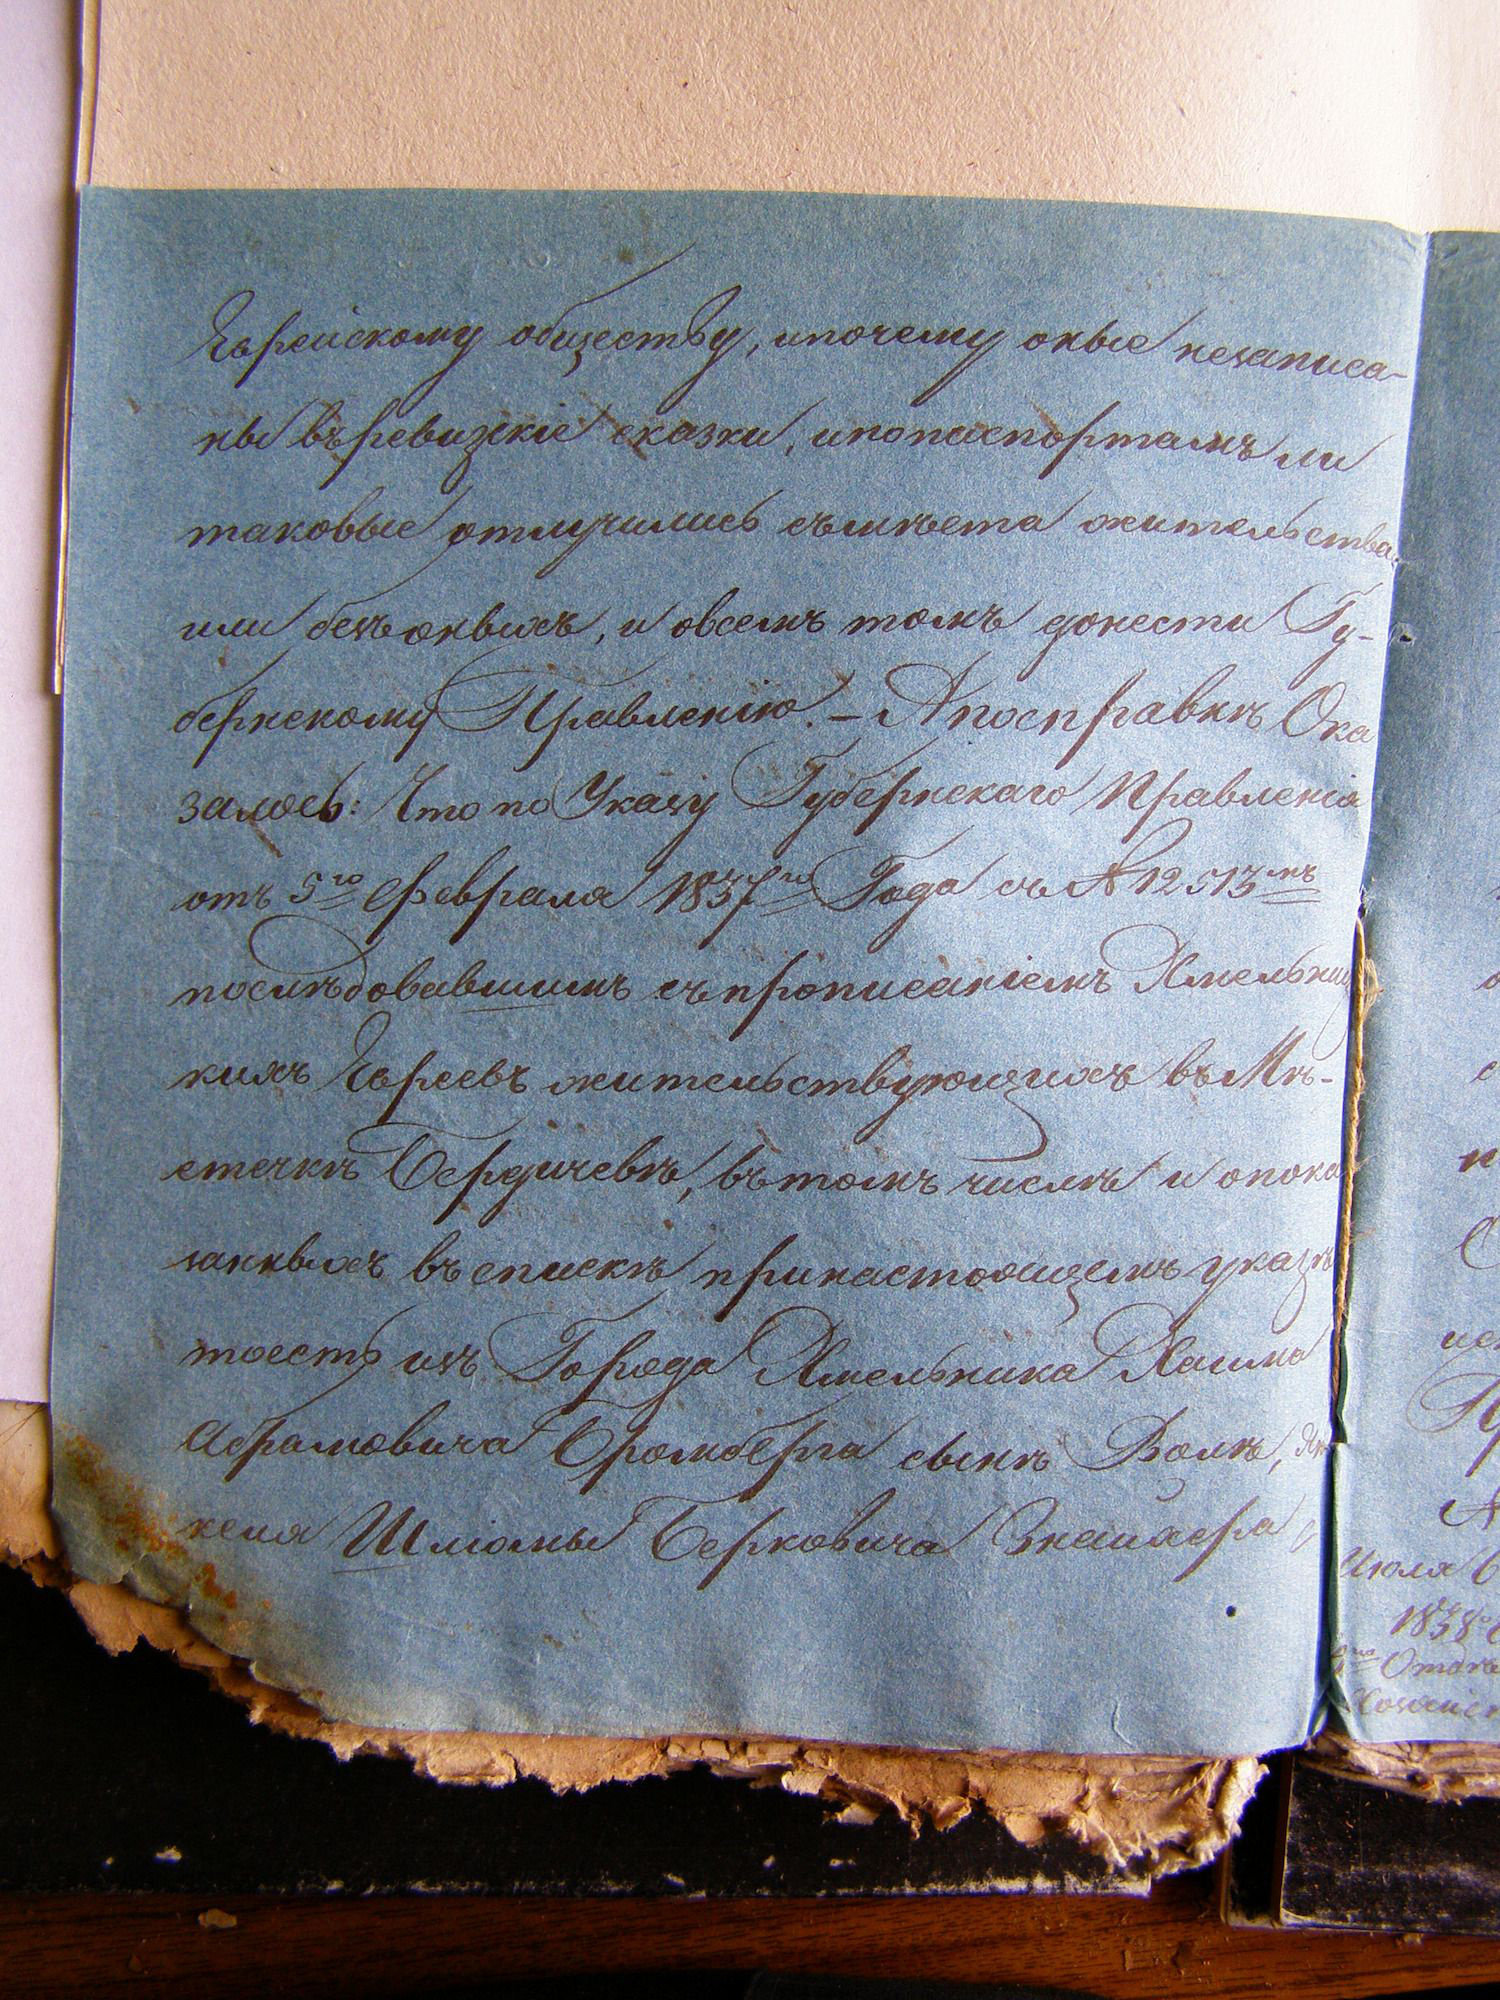 Еврейскому обществу, ипочему оные незаписа-
ны въревизскіе сказки, ипопаспортамъ ли
таковые отлучились съмѣста жительства
или безъ оныхъ, и овсемъ томъ донести Гу-
бернскому Правленію. – Апосправкѣ Ока
залось: Что по Указу Губернскаго Правленія
отъ 5го Февраля 1837го Года съ № 12513мъ
послѣдовавшимъ съпрописаніемъ Хмельниц
кихъ Евреевъ жительствующихъ въ Мѣ-
стечкѣ Бердичевѣ, въ томъ числѣ и опока
занныхъ въ спискѣ принастоящемъ указѣ
тоесть изъ Города Хмельника Хаима
Абрамовича Бромберга сынѣ Волкѣ, Ян
келя Шліомы Берковича
Июля
1838го